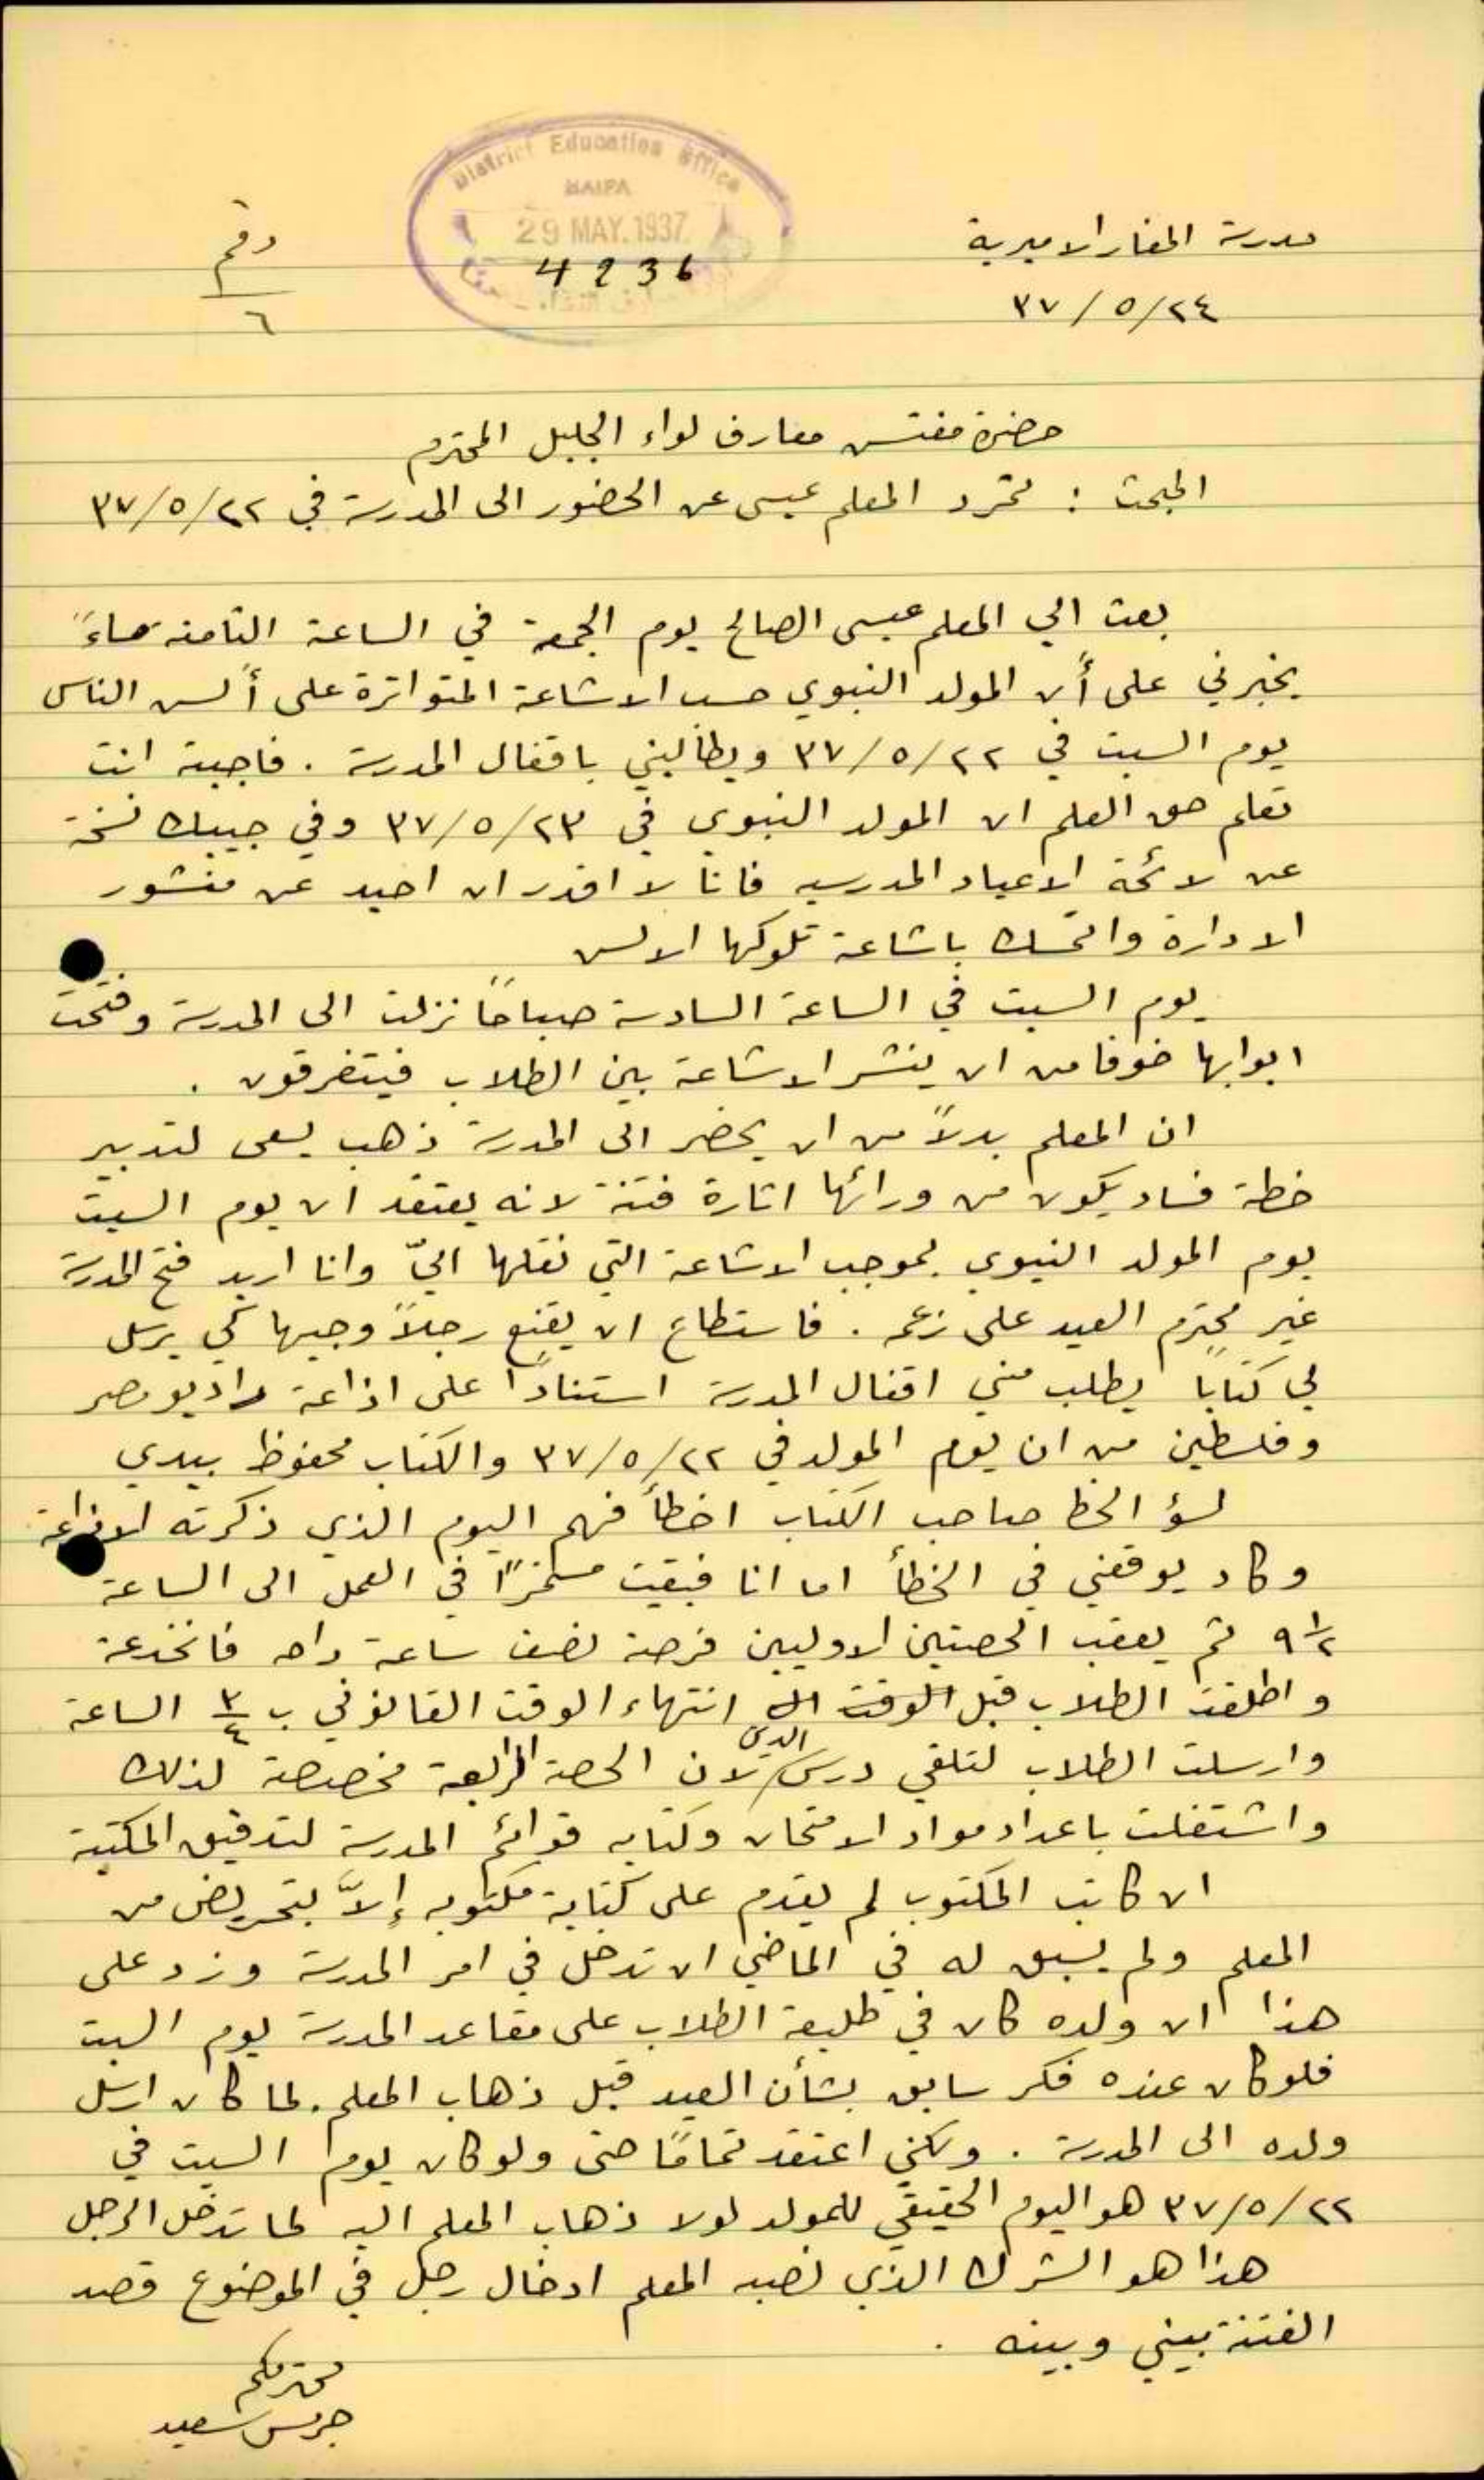 District Education Office
HAIFA
29 MAY.1937
4236
مدرسة المغار الاميرية
٢٤/٥/٣٧
رقم
٦
حضرة مفتش معارف لواء الجليل المحترم
المبحث : تمرد المعلم عيسى عن الحضور الى المدرسة في ٢٢/٥/٣٧
بعث الي المعلم عيسى الصالح يوم الجمعة في الساعة الثامنة مساءً
يخبرني على أن المولد النبوي حسب الاشاعة المتواترة على ألسن الناس
يوم السبت في ٢٢/٥/٣٧ ويطالبني باقفال المدرسة . فاجبته انت
تعلم حق العلم ان المولد النبوي في ٢٣/٥/٣٧ وفي جيبك نسخة
عن لائحة الاعياد المدرسيه فانا لا اقدر ان احيد عن منشور
الادارة واتمسك باشاعة تلوكها الالسن
يوم السبت في الساعة السادسة صباحًا نزلت الى المدرسة وفتحت
ابوابها خوفا من ان ينشر الاشاعة بين الطلاب فيتفرقون .
ان المعلم بدلاً من ان يحضر الى المدرسة ذهب يسعى لتدبير
خطة فساد يكون من ورائها اثارة فتنة لانه يعتقد ان يوم السبت
يوم المولد النبوي بموجب الاشاعة التي نقلها اليّ وانا اريد فتح المدرسة
غير محترم العيد على زعمه . فاستطاع ان يقنع رجلاً وجيها كي يرسل
لي كتابا يطلب مني اقفال المدرسة استنادًا على اذاعة راديو مصر
وفلسطين من ان يوم المولد في ٢٢/٥/٣٧ والكتاب محفوظ بيدي
لسؤ الحظ صاحب الكتاب اخطأ فهم اليوم الذي ذكرته الاذاعة
وكاد يوقعني في الخطأ اما انا فبقيت مستمرًا في العمل الى الساعة
٩ ١/٢ ثم يعقب الحصتين الاوليين فرصة نصف ساعة راحه فانخدعة
واطلقت الطلاب قبل الوقت ال انتهاء الوقت القانوني ب ٣/٤ الساعة
وارسلت الطلاب لتلقي درس الدين لان الحصة الرابعة مخصصة لذلك
واشتغلت باعداد مواد الامتحان وكتابه قوائم المدرسة لتدقيق المكتبة
ان كاتب المكتوب لم يقدم على كتابة مكتوبه إلاّ بتحريض من
المعلم ولم يسبق له في الماضي ان تدخل في امر المدرسة وزد على
هذا ان ولده كان في طليعة الطلاب على مقاعد المدرسة يوم السبت
فلو كان عنده فكر سابق بشأن العيد قبل ذهاب المعلم. لما كان ارسل
ولده الى المدرسة . ولكني اعتقد تمامًا حتى ولو كان يوم السبت في
٢٢/٥/٣٧ هو اليوم الحقيقي للمولد لولا ذهاب المعلم اليه لما تدخل الرجل
هذا هو الشرك الذي نصبه المعلم ادخال رجل في الموضوع قصد
الفتنة بيني وبينه .
محترمكم
جريس سعيد